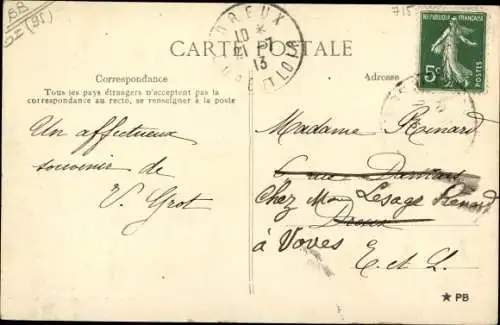 715
BB
DREUX
EURE ET LOIR
13
RÉPUBLIQUE FRANÇAISE
5c
POSTES
CARTE POSTALE
Correspondance
Adresse
Tous les pays étrangers n'acceptent pas la
correspondance au recto, se renseigner à la poste
Un affectueux
souvenir de
V. Grot
Madame Renard
rue
Chez Mon Lesage Renard
Dreux
à Voves
E. et L.
★ PB